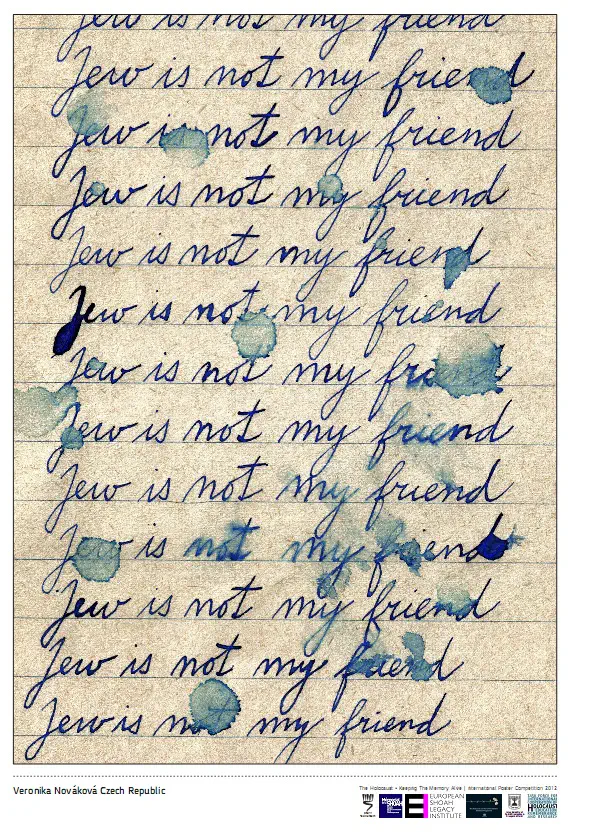 Jew is not my friend
Jew is not my friend
Jew is not my friend
Jew is not my friend
Jew is not my friend
Jew is not my friend
Jew is not my friend
Jew is not my friend
Jew is not my friend
Jew is not my friend
Jew is not my friend
Jew is not my friend
Jew is not my friend
Veronika Nováková Czech Republic
The Holocaust - Keeping The Memory Alive | International Poster Competition 2012
EUROPEAN
SHOAH
LEGACY
INSTITUTE
HOLOCAUST